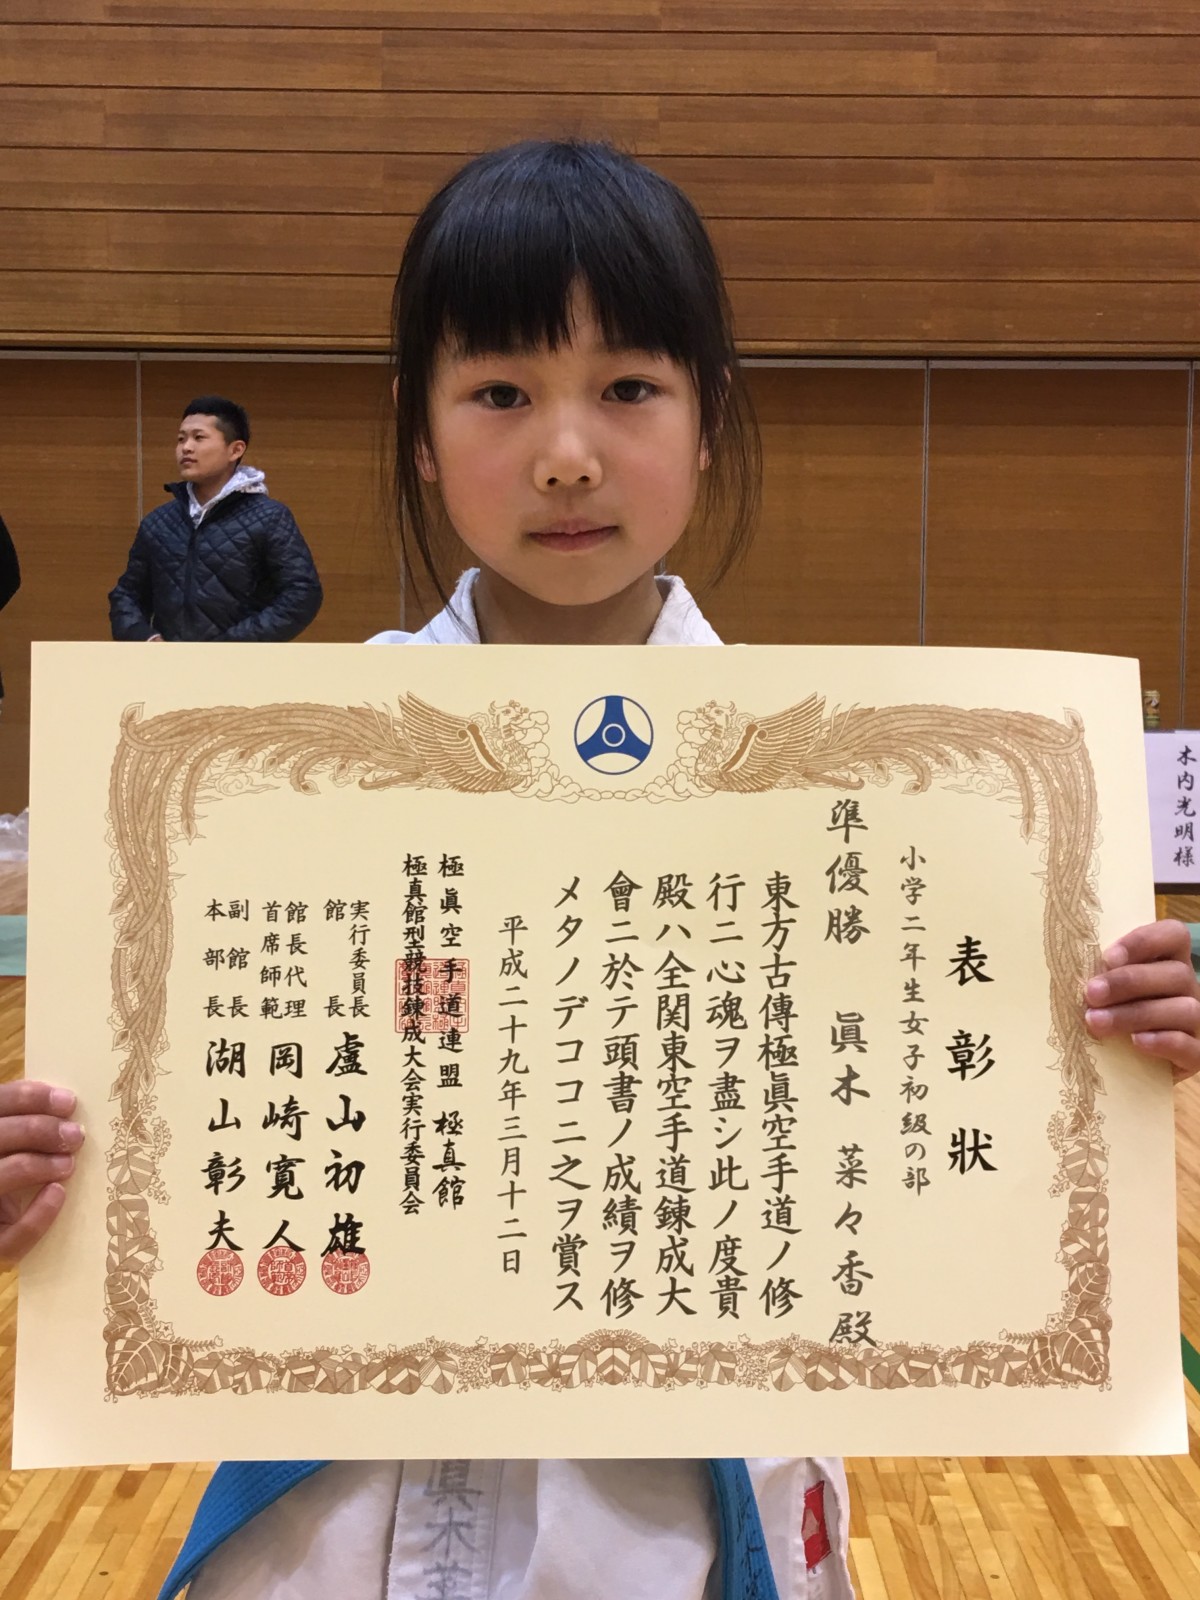 表彰狀
小学二年生女子初級の部
準優勝 眞木 菜々香 殿
東方古傳極眞空手道ノ修
行ニ心魂ヲ盡シ此ノ度貴
殿ハ全関東空手道錬成大
會ニ於テ頭書ノ成績ヲ修
メタノデココニ之ヲ賞ス
平成二十九年三月十二日
極眞空手道連盟 極真館
極真館型競技錬成大会実行委員会
実行委員長
館長 盧山初雄
館長代理
首席師範 岡崎寛人
副館長
本部長 湖山彰夫
木内光明様
眞木菜